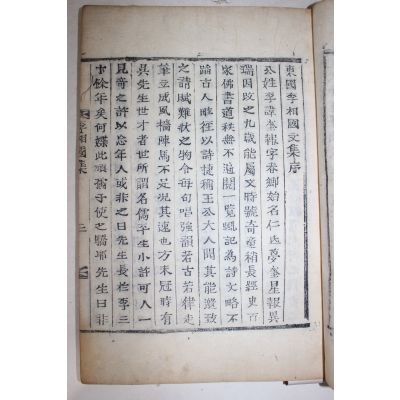 東國李相國文集序
公姓李諱奎報字春卿始名仁氐夢奎星報異
瑞因改之九歲能屬文時號奇童稍長經史百
家佛書道秩無不遍閱一覽輒記爲詩文略不
蹈古人畦徑以詩捷稱王公大人聞其能激致
之請賦難狀之物令每句唱強韻若古若律走
筆立成風檣陣馬不足況其速也方未冠時有
吳先生世才者世所謂名儒平生小許可人一
見奇之許以忘年人或非之曰先生長於李三
十餘年矣何媟此頑孺子使之驕耶先生曰非
李相國集